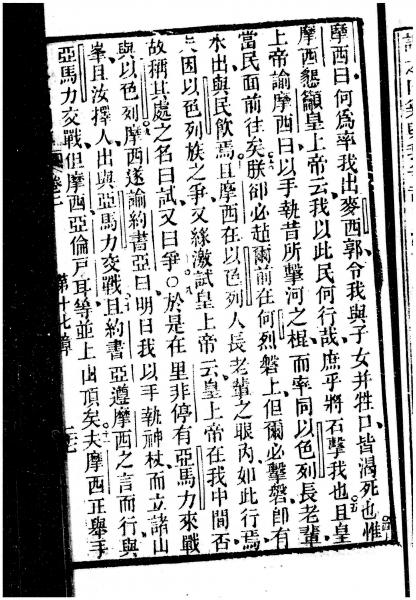 摩西曰何爲率我出麥西郭令我與子女幷牲口皆渴死也惟
摩西懇籲皇上帝云我以此民何行哉庶乎將石擊我也且皇
上帝諭摩西曰以手執昔所擊河之棍而率同以色列長老輩
當民面前往矣朕卻必趂爾前在何烈磐上但爾必擊磐卽有
水出與民飲焉且摩西在以色列人長老輩之眼內如此行焉
因以色列族之爭又緣激試皇上帝云皇上帝在我中間否
故稱其處之名曰試又曰爭○於是在里非停有亞馬力來戰
與以色列摩西遂諭約書亞曰明日我以手執神杖而立諸山
峯且汝擇人出與亞馬力交戰且約書亞遵摩西之言而行與
亞馬力交戰但摩西亞倫戸耳等並上山頂矣夫摩西正舉手
卷二 第十七章